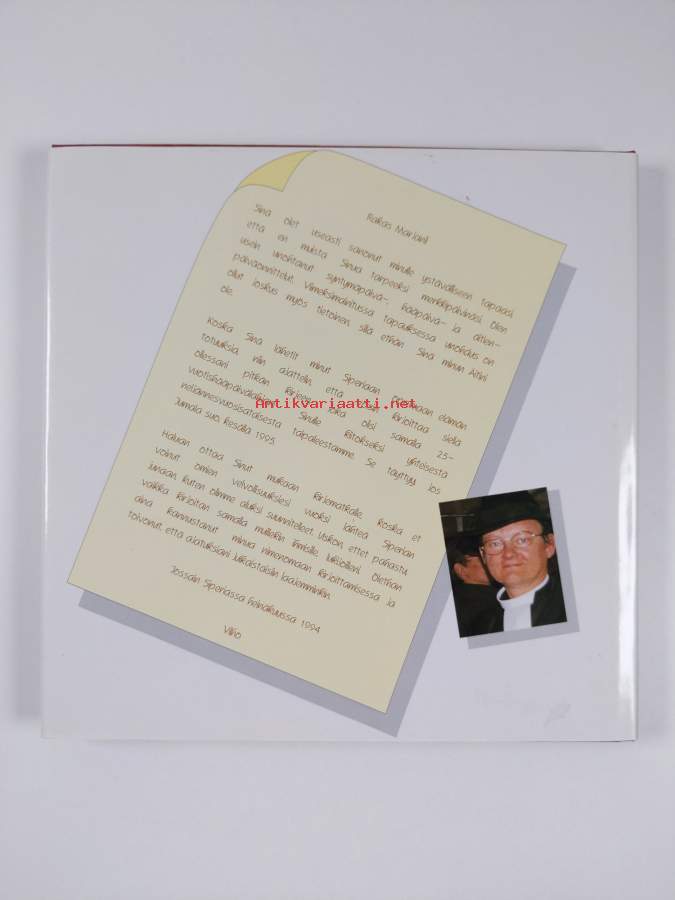 Rakas Marjani!
Sinä olet useasti sanonut minulle ystävälliseen tapaasi,
että en muista Sinua tarpeeksi merkkipäivinäsi. Olen
usein unohtanut syntymäpäivä-, hääpäivä- ja äitien-
päiväonnittelut. Viimeksimainitussa tapauksessa unohdus on
ollut joskus myös tietoinen, sillä ethän Sinä minun äitini
ole.
Koska Sinä lähetit minut Siperiaan oppimaan elämän
totuuksia, niin ajattelin, että kirjoittaa sielä
ollessani pitkän kirjeen, joka olisi samalla 25-
vuotishääpäivälahja Sinulle kiitokseksi yhteisestä
neljännesvuosisataisesta taipaleestamme. Se täyttyy, jos
Jumala suo, kesällä 1995.
Haluan ottaa Sinut mukaan kirjematkalle, koska et
voinut omien velvollisuuksiesi vuoksi lähteä Siperian
junaan, kuten olimme aluksi suunnitelleet. Uskon, ettet pahastu
vaikka kirjoitan samalla muillekin ihmisille, lukijoilleni. Olethan
aina kannustanut minua nimenomaan kirjoittamisessa ja
toivonut, että ajatuksiani julkaistaisiin laajemminkin.
Jossain Siperiassa heinäkuussa 1994
Viljo
Antikvariaatti.net